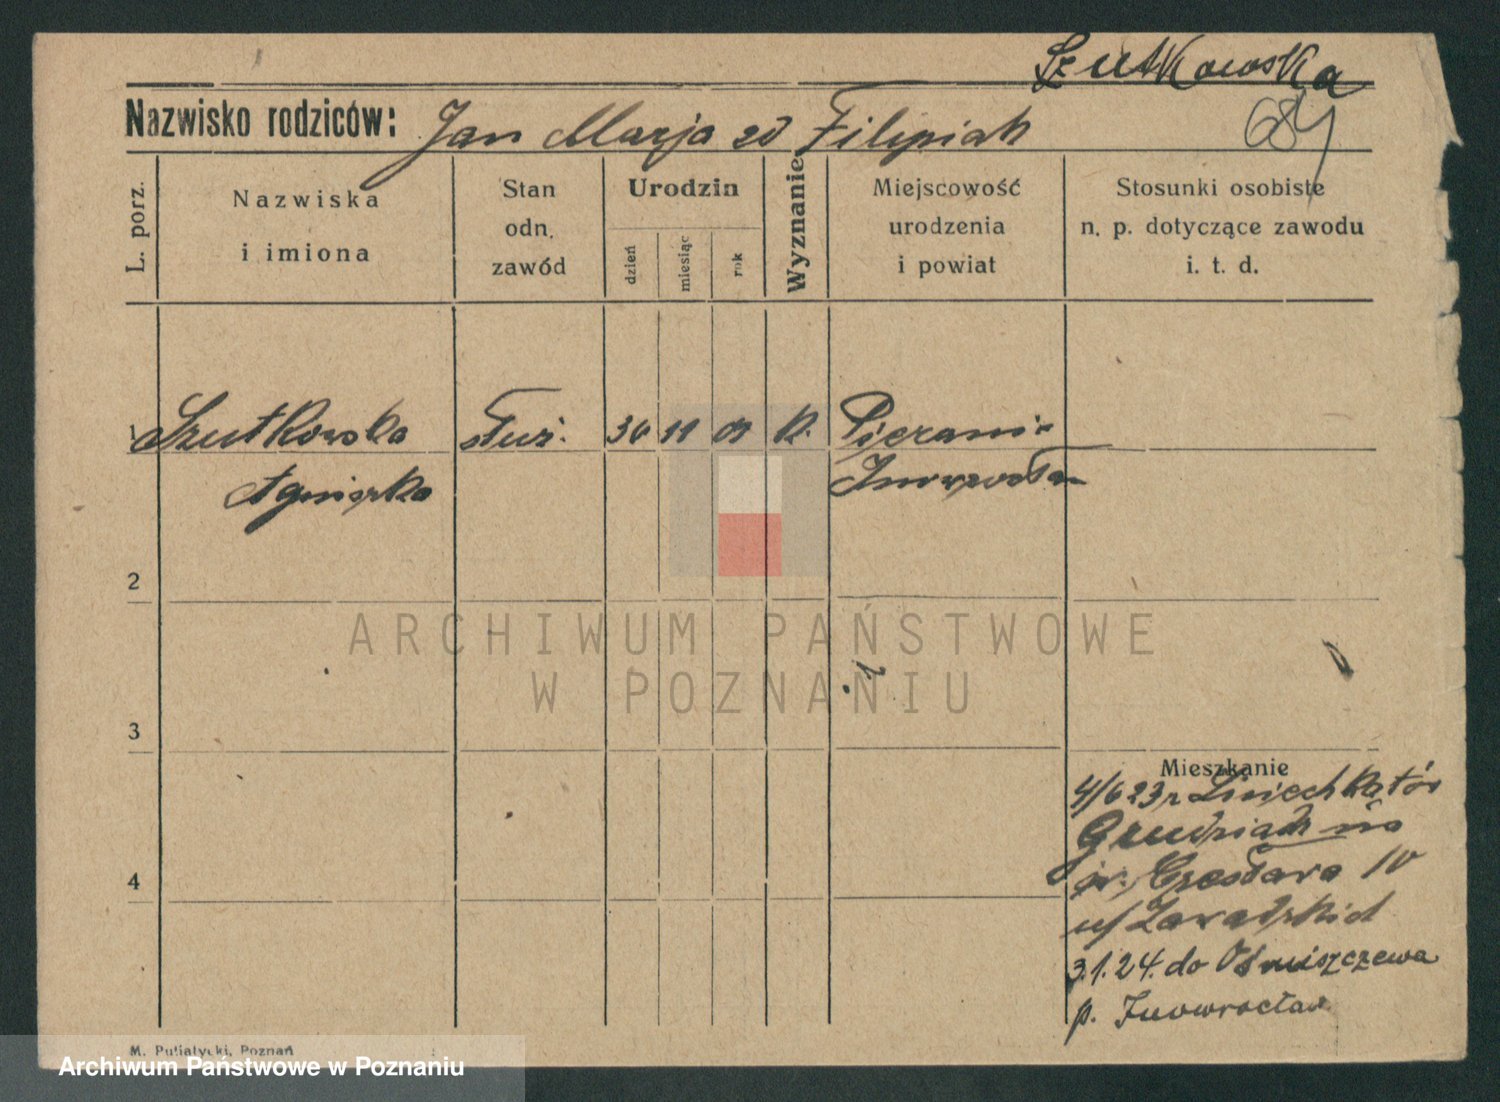 Szutkowska
Nazwisko rodziców: Jan Marja zd Filipiak
684
L. porz.
Nazwiska
i imiona
Stan
odn.
zawód
Urodzin
dzień
miesiąc
rok
Wyznanie
Miejscowość
urodzenia
i powiat
Stosunki osobiste
n. p. dotyczące zawodu
i. t. d.
1 Szutkowska służ. 30 11 07 k. Pieranie
Agnieszka Inowrocław
2
ARCHIWUM PAŃSTWOWE
W POZNANIU
3
Mieszkanie
4/6 23 r
4
Czesława 10
u/ Zawadzkich
3.1.24. do
p. Inowrocław
M. Putiatycki, Poznań
Archiwum Państwowe w Poznaniu